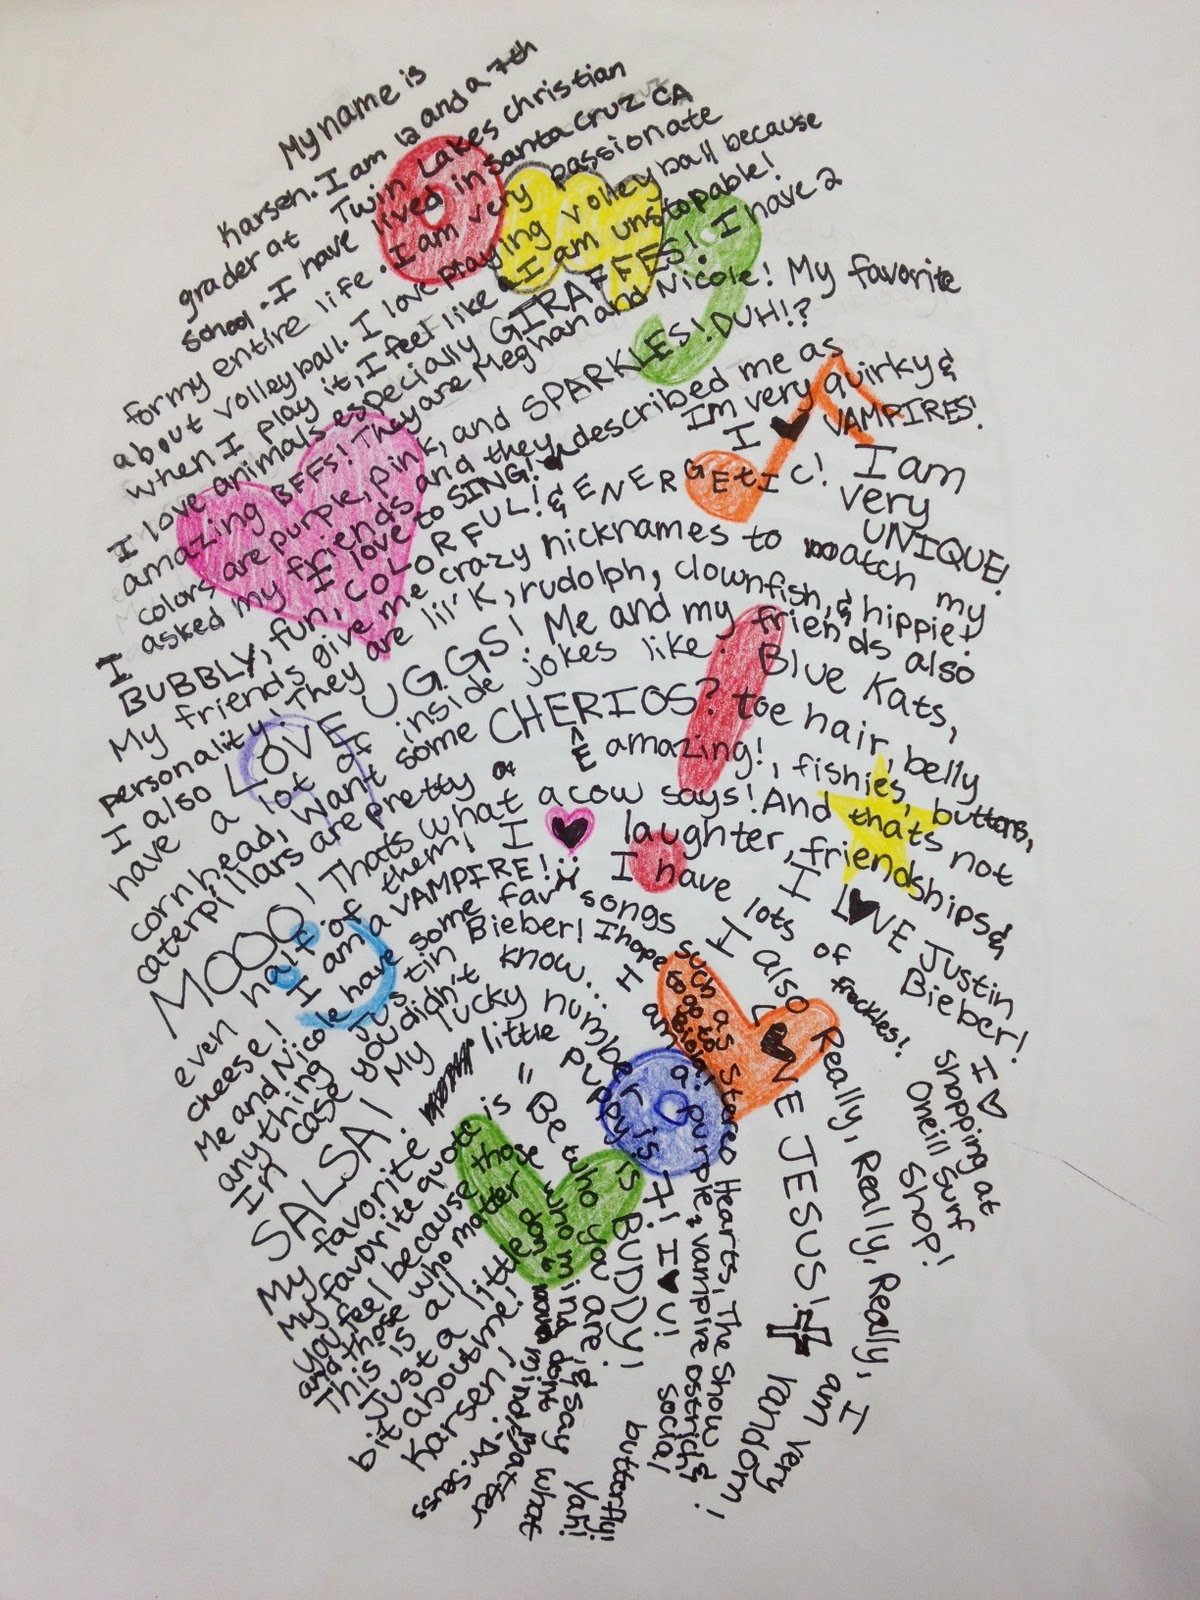 My name is
Karsen. I am 12 and a 7th
grader at Twin Lakes christian
school. I have lived in Santa Cruz CA
for my entire life. I am very passionate
about volleyball. I love playing volleyball because
when I play it, I feel like I am unstopable!
I love animals especially GIRAFFES! I have 2
amazing BFFS! They are Meghan and Nicole! My favorite
colors are purple, pink, and SPARKLES! DUH!?
I asked my friends and they described me as
BUBBLY, fun, COLORFUL! & ENERGEtIC!
I love to SING!
I'm very quirky &
I ♥ VAMPIRES!
I am
very
UNIQUE!
My friends give me crazy nicknames to match my
personality! They are lil' K, rudolph, clownfish, & hippie!
I also LOVE UGGS! Me and my friends also
have a lot of inside jokes like: Blue Kats,
corn head, Want some CHERIOS? toe hair, belly
caterpillars are pretty amazing!, fishies, buttons,
MOOO! Thats what a cow says! And thats not
even half of them! I ♥ laughter, friendships &
cheese! I am a VAMPIRE! I have lots of freckles!
I LOVE Justin
Bieber!
Me and Nicole have some fav songs such as Stereo Hearts, The Show
anything Justin Bieber! I hope to go to Biola!
In case you didn't know... I am a purple vampire ostrich &
social
butterfly!
SALSA! My lucky number is 7! I ♥ U!
My favorite little puppy is BUDDY!
My favorite quote is "Be who you are, & say what
you feel because those who mind dont matter
and those who matter dont mind." Dr. Seuss
This is all
Just a little
bit about me!
Karsen!
Yah!
I also LOVE JESUS!
Really, Really, Really, Really, I am very random!
I ♥
shopping at
Oneill Surf
SHOP!